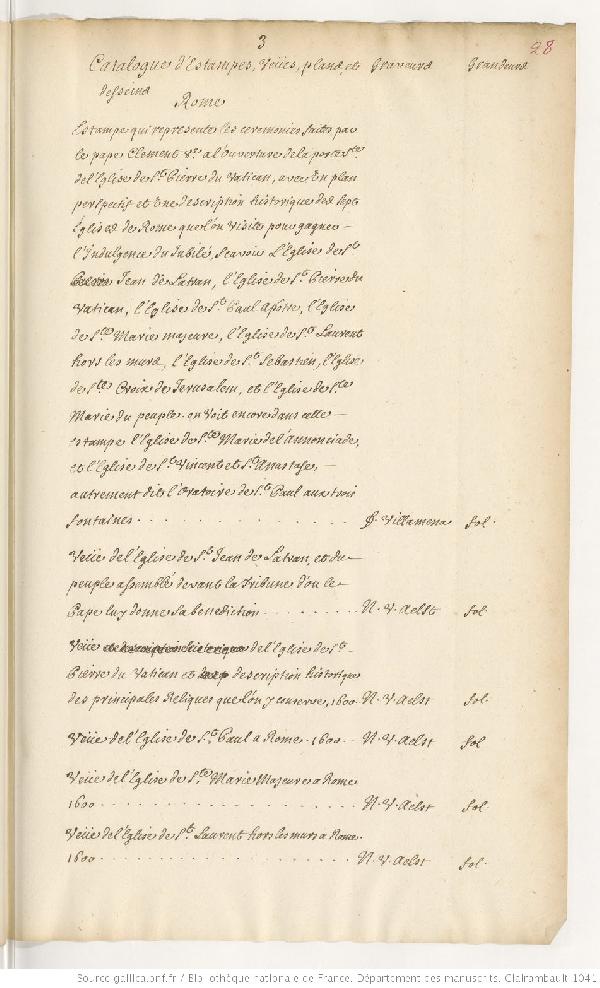 3
28
Catalogue d'Estampes, Veües, plans, et Graveurs Grandeurs
desseins
Rome
Estampe qui represente les ceremonies faites par
le pape Clement 8e. a l'ouverture de la porte Ste.
de l'Eglise de St. Pierre du Vatican, avec un plan
perspectif et une description historique des sept
Églises de Rome que l'on visite pour gagner
l'Indulgence du Jubilé, Scavoir L'Eglise de St.
Jean de Latran, l'Eglise de St. Pierre du
Vatican, l'Eglise de St. Paul Apotre, l'Eglise
de Ste. Marie majeure, l'Eglise de St. Laurent
hors les murs, l'Eglise de St. Sebastien, l'Eglise
de Ste. Croix de Jerusalem, et l'Eglise de Ste.
Marie du peuple. on voit encore dans cette
estampe l'Eglise de Ste. Marie de l'annonciade,
et l'Eglise de St. Vincent et St. Anastase,
autrement dite l'oratoire de St. Paul aux trois
fontaines . . . . . . . . . . . . Villamena fol.
Veüe de l'Eglise de St. Jean de Latran, et du
peuple assemblé devant la Tribune d'ou le
Pape luy donne sa benediction . . . . . . . . N. V. Aelst fol.
Veüe de l'Eglise de St.
Pierre du Vatican et description historique
des principales Reliques que l'on y conserve, 1600. N. V. Aelst fol.
Veüe de l'Eglise de St. Paul a Rome. 1600. N. V. Aelst fol
Veüe de l'Eglise de Ste. Marie Majeure a Rome
1600 . . . . . . . . . . . . . . . . . . . N. V. Aelst fol.
Veüe de l'Eglise de St. Laurent hors les murs a Rome.
1600 . . . . . . . . . . . . . . . . . . . N. V. Aelst fol.
Source gallica.bnf.fr / Bibliothèque nationale de France. Département des manuscrits. Clairambault 1041